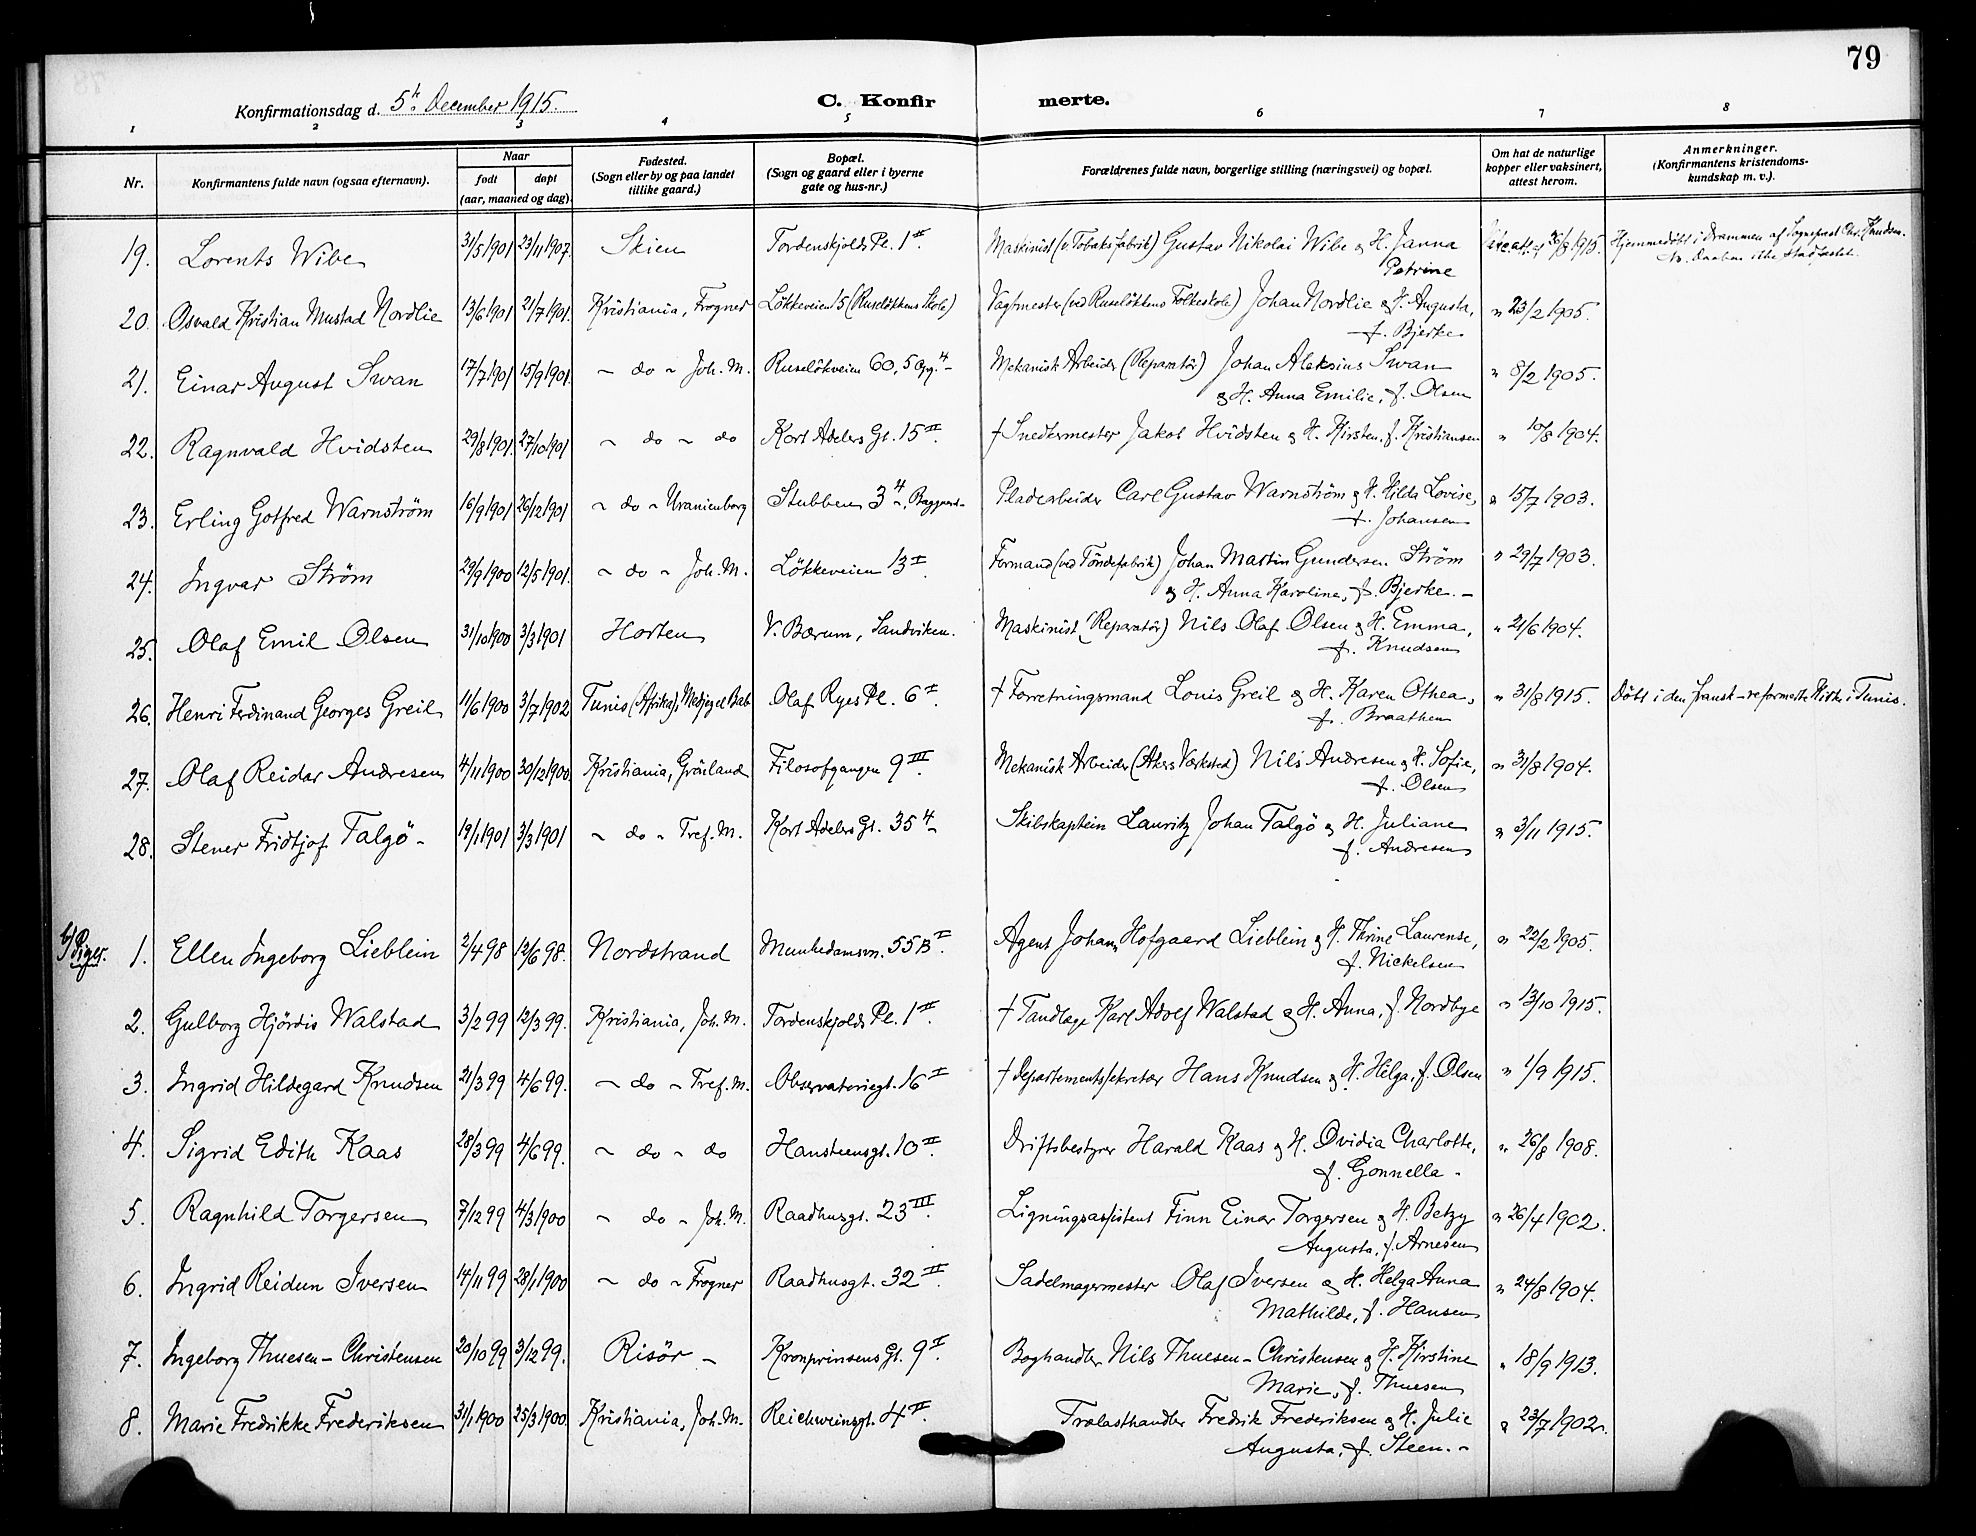 79
Konfirmationsdag d. 5te December 1915.
C. Konfir merte.
1 2 3 4 5 6 7 8
Nr.
Konfirmantens fulde navn (ogsaa efternavn).
Naar
født døpt
(aar, maaned og dag).
Fødested.
(Sogn eller by og paa landet
tillike gaard.)
Bopæl.
(Sogn og gaard eller i byerne
gate og hus-nr.)
Forældrenes fulde navn, borgerlige stilling (næringsvei) og bopæl.
Om hat de naturlige
kopper eller vaksinert,
attest herom.
Anmerkninger.
(Konfirmantens kristendoms-
kundskap m. v.).
19. Lorents Wibe 31/5 1901 23/11 1907. Skien Tordenskjolds Pl. 1 II. Maskinist (v. Tobaksfabrik) Gustav Nikolai Wibe & H. Janna 26/8 1915. Hjemmedöbt i Drammen af Sognepræst Chr. Knudsen.
Petrine
20. Osvald Kristian Mustad Nordlie 13/6 1901 21/7 1901. Kristiania, Frogner Løkkeveien 15 (Ruseløkkens Skole) Vagtmester (ved Ruseløkkens Folkeskole) Johan Nordlie & H. Augusta, " 23/2 1905.
f. Bjerke
21. Einar August Swan 17/7 1901 15/9 1901. ~ do ~ Joh. M. Ruseløkveien 60, 5 Opg. 4 Mekanisk Arbeider (Reparatör) Johan Aleksius Swan " 8/2 1905.
& H. Anna Emilie, f. Olsen
22. Ragnvald Hvidsten 29/8 1901. 27/10 1901 ~ do ~ do Kort Adelers Gt. 15 II. † Snedkermester Jakob Hvidsten & H. Kirsten, f. Kristiansen " 10/8 1904.
23. Erling Gotfred Warnström 16/9 1901 26/12 1901 ~ do ~ Uranienborg Stubben 3 4, Baggaard Pladearbeider Carl Gustav Warnström & H. Hilda Lovise, " 15/7 1903.
f. Johansen
24. Ingvar Ström 29/9 1900 12/5 1901. ~ do ~ Joh. M. Løkkeveien 13 I. Formand (ved Töndefabrik) Johan Martin Gundersen Ström " 29/7 1903.
& H. Anna Karoline, f. Bjerke. –
25. Olaf Emil Olsen 31/10 1900 3/3 1901 Horten V. Bærum, Sandviken. Maskinist (Reparatör) Nils Olaf Olsen & H. Emma, " 21/6 1904.
f. Knudsen
26. Henri Ferdinand Georges Greil 11/6 1900 3/7 1902 Tunis (Afrika), Medjez el Bab Olaf Ryes Pl. 6 I. † Forretningsmand Louis Greil & H. Karen Othea, " 31/8 1915. Döbt i den fransk-reformerte Kirke i Tunis.
f. Braathen
27. Olaf Reidar Andresen 4/11 1900 30/12 1900. Kristiania, Grönland Filosofgangen 9 III. Mekanisk Arbeider (Akers Værksted) Nils Andresen & H. Sofie, " 31/8 1904.
f. Olsen
28. Stener Fridtjof Talgö - 19/1 1901 3/3 1901 ~ do ~ Tref. M. Kort Adelers Gt. 35 4 Skibskaptein Lauritz Johan Talgö & H. Juliane " 3/11 1915.
f. Andresen
b) Piger.
1. Ellen Ingeborg Lieblein 2/4 98 12/6 98. Nordstrand Munkedamsvn. 55B I. Agent Johan Hofgaard Lieblein & H. Thrine Laurense, " 22/2 1905.
f. Nickelsen
2. Gulborg Hjördis Walstad 3/2 99 12/3 99. Kristiania, Joh. M. Tordenskjolds Pl. 1 II. † Tandlæge Karl Adolf Walstad & H. Anna, f. Nordbye " 13/10 1915.
3. Ingrid Hildegard Knudsen 21/3 99 4/6 99. ~ do ~ Tref. M. Observatoriegt. 16 I † Departementssekretær Hans Knudsen & H. Helga, f. Olsen " 1/9 1915.
4. Sigrid Edith Kaas 28/3 99 4/6 99. ~ do ~ do Hansteensgt. 10 II. Driftsbestyrer Harald Kaas & H. Ovidia Charlotte, " 26/8 1908.
f. Gonnella -
5. Ragnhild Torgersen 7/12 99 4/3 1900 ~ do ~ Joh. M. Raadhusgt. 23 III. Ligningsassistent Finn Einar Torgersen & H. Betzy " 26/4 1902.
Augusta, f. Arnesen
6. Ingrid Reidun Iversen 14/11 99 28/1 1900 ~ do ~ Frogner Raadhusgt. 32 II. Sadelmagermester Olaf Iversen & H. Helga Anna " 24/8 1904.
Mathilde, f. Hansen
7. Ingeborg Thuesen-Christensen 20/10 99 3/12 99. Risör – Kronprinsens Gt. 9 I. Boghandler Nils Thuesen-Christensen & H. Kirstine " 18/9 1913.
Marie, f. Thuesen
8. Marie Fredrikke Frederiksen 31/1 1900 25/3 1900. Kristiania, Joh. M. Reichweinsgt. 4 II. Trælasthandler Fredrik Frederiksen & H. Julie " 23/7 1902.
Augusta, f. Steen. –